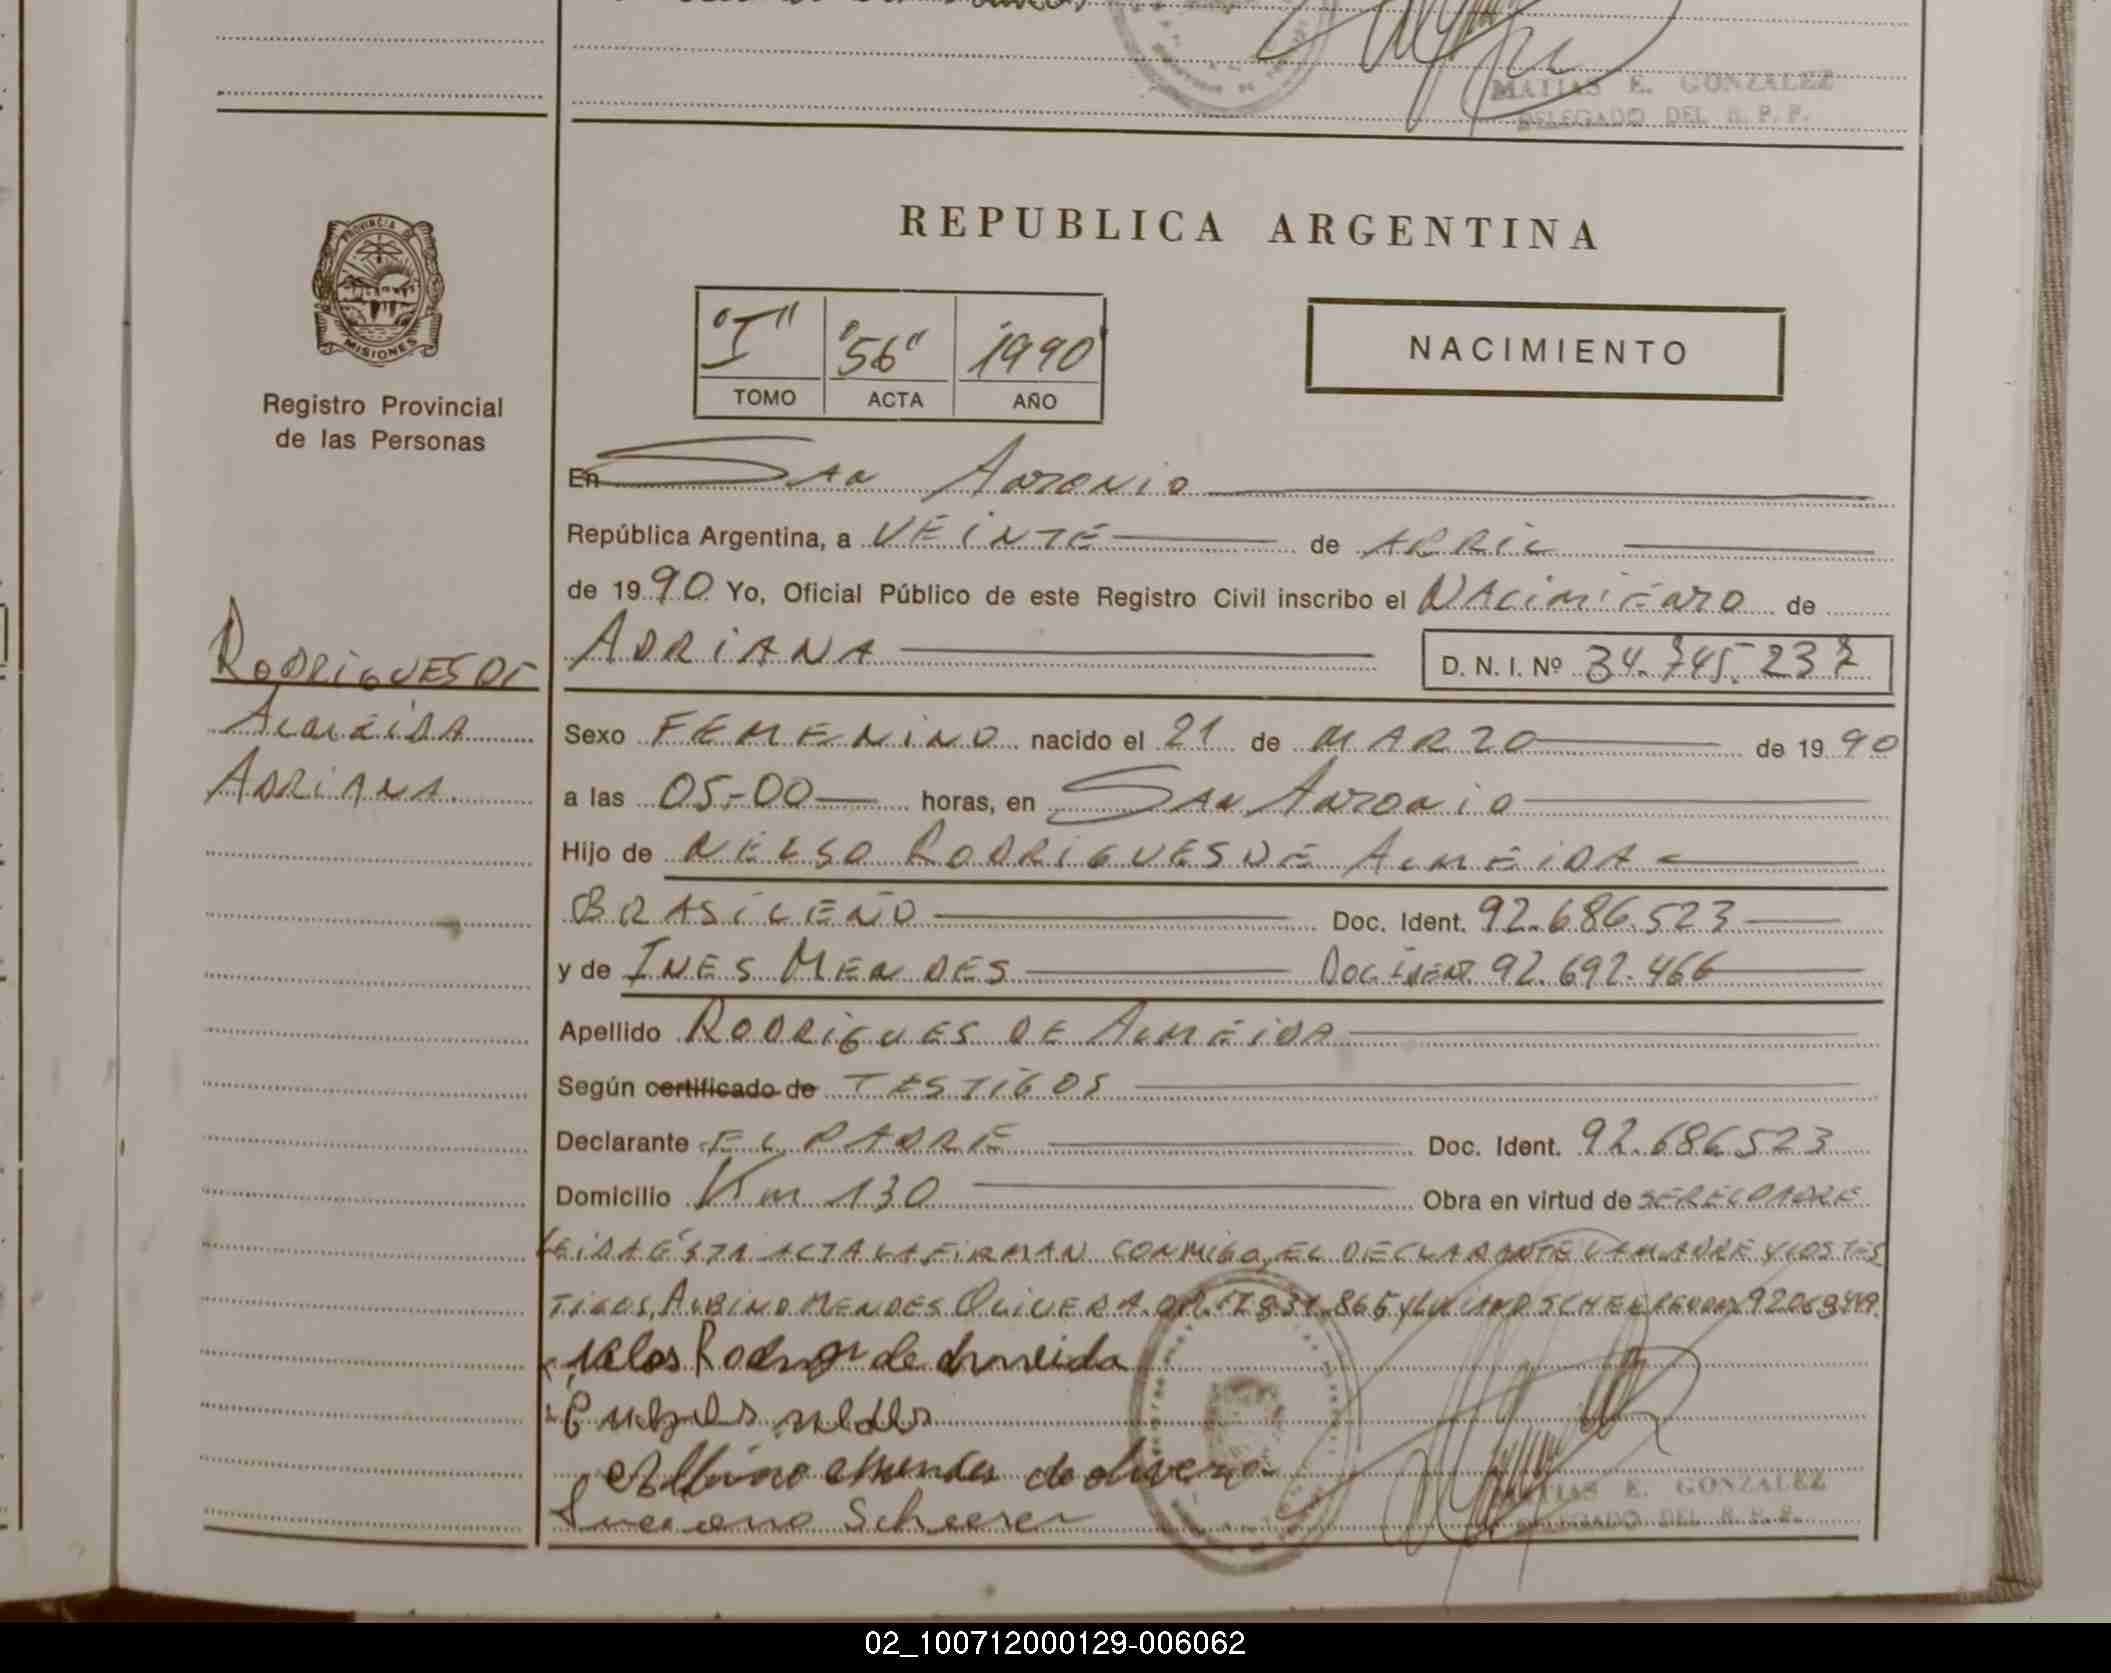 MATIAS E. GONZALEZ
DELEGADO DEL R. P. P.
PROVINCIA DE
MISIONES
Registro Provincial
de las Personas
REPUBLICA ARGENTINA
"I" "56" 1990
TOMO ACTA AÑO
NACIMIENTO
En San Antonio
República Argentina, a VEINTE de ABRIL
de 19 90 Yo, Oficial Público de este Registro Civil inscribo el NACIMIENTO de
ADRIANA D. N. I. Nº 34.745.237
RODRIGUES DE
ALMEIDA
ADRIANA
Sexo FEMENINO nacido el 21 de MARZO de 19 90
a las 05-00 horas, en San Antonio
Hijo de NELSO RODRIGUES DE ALMEIDA
BRASILEÑO Doc. Ident. 92.686.523
y de INES MENDES DOC. IDENT. 92.692.466
Apellido RODRIGUES DE ALMEIDA
Según certificado de TESTIGOS
Declarante EL PADRE Doc. Ident. 92.686523
Domicilio Km 130 Obra en virtud de SER EL PADRE
LEIDA ÉSTA ACTA LA FIRMAN CONMIGO, EL DECLARANTE LA MADRE Y LOS TES
TIGOS, ALBINO MENDES OLIVERA Y LUCIANO
Rodrigues de almeida
Albino Mendes de olivera
Luciano Scheerer
MATIAS E. GONZALEZ
DELEGADO DEL R. P. P.
02_100712000129-006062